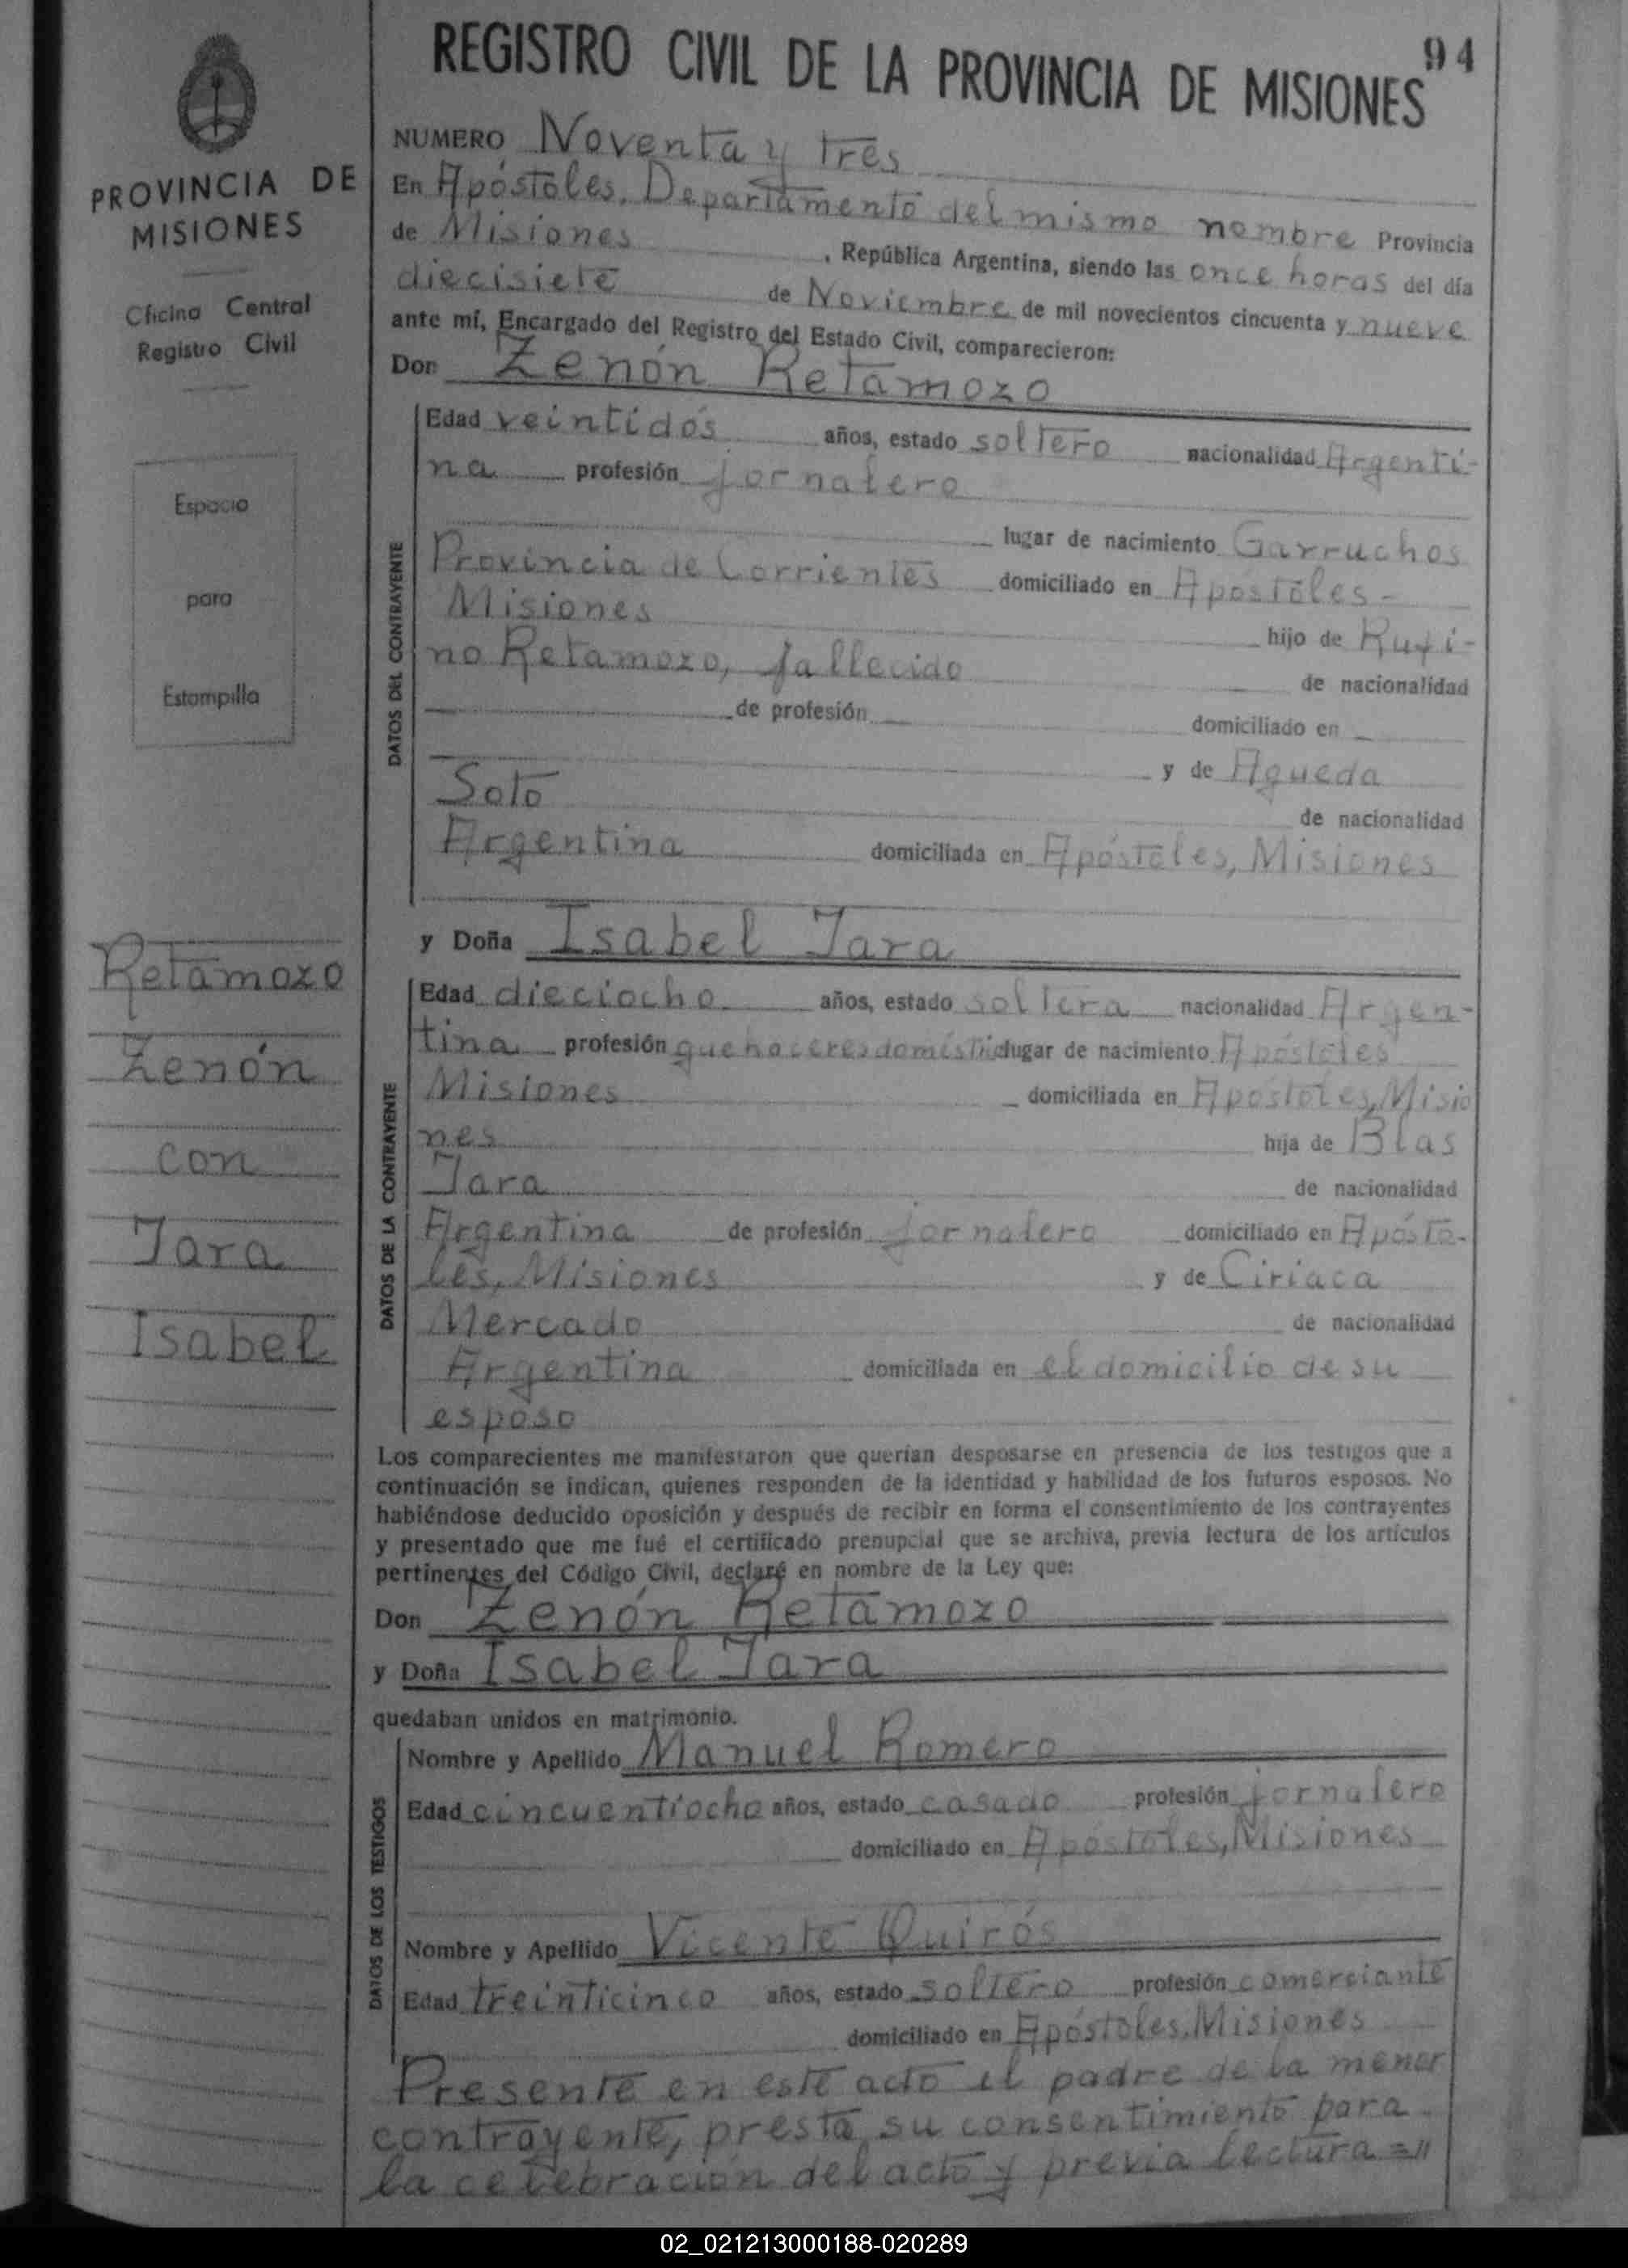 94
REGISTRO CIVIL DE LA PROVINCIA DE MISIONES
PROVINCIA DE
MISIONES
Oficina Central
Registro Civil
Espacio
para
Estampilla
Retamozo
Zenón
con
Jara
Isabel
NUMERO Noventa y tres
En Apóstoles, Departamento del mismo nombre Provincia
de Misiones, República Argentina, siendo las once horas del día
diecisiete de Noviembre de mil novecientos cincuenta y nueve
ante mí, Encargado del Registro del Estado Civil, comparecieron:
Don Zenón Retamozo
DATOS DEL CONTRAYENTE
Edad veintidós años, estado soltero nacionalidad Argenti-
na profesión jornalero
lugar de nacimiento Garruchos
Provincia de Corrientes domiciliado en Apóstoles-
Misiones hijo de Rufi-
no Retamozo, fallecido de nacionalidad
de profesión domiciliado en
y de Agueda
Soto de nacionalidad
Argentina domiciliada en Apóstoles, Misiones
y Doña Isabel Jara
DATOS DE LA CONTRAYENTE
Edad dieciocho años, estado soltera nacionalidad Argen-
tina profesión quehaceres domésticlugar de nacimiento Apóstoles
Misiones domiciliada en Apóstoles, Misio
nes hija de Blas
Jara de nacionalidad
Argentina de profesión jornalero domiciliado en Apósto-
les, Misiones y de Ciriaca
Mercado de nacionalidad
Argentina domiciliada en el domicilio de su
esposo
Los comparecientes me manifestaron que querían desposarse en presencia de los testigos que a
continuación se indican, quienes responden de la identidad y habilidad de los futuros esposos. No
habiéndose deducido oposición y después de recibir en forma el consentimiento de los contrayentes
y presentado que me fué el certificado prenupcial que se archiva, previa lectura de los artículos
pertinentes del Código Civil, declaré en nombre de la Ley que:
Don Zenón Retamozo
y Doña Isabel Jara
quedaban unidos en matrimonio.
DATOS DE LOS TESTIGOS
Nombre y Apellido Manuel Romero
Edad cincuentiocho años, estado casado profesión jornalero
domiciliado en Apóstoles, Misiones
Nombre y Apellido Vicente Quirós
Edad treinticinco años, estado soltero profesión comerciante
domiciliado en Apóstoles, Misiones
Presente en este acto el padre de la menor
contrayente, presta su consentimiento para
la celebración del acto y previa lectura =//
02_021213000188-020289